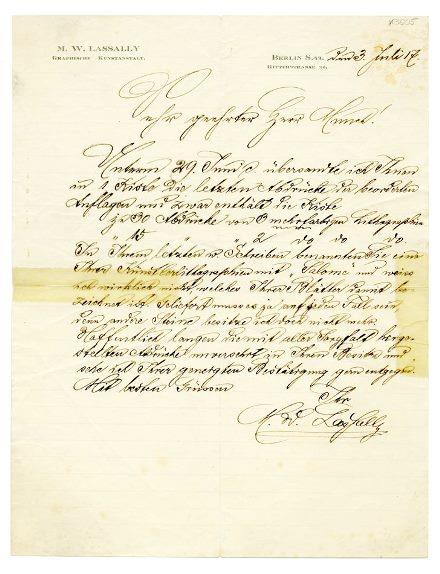 K3605
M. W. LASSALLY
GRAPHISCHE KUNSTANSTALT.
BERLIN S.42, den 3. Juli 17.
RITTERSTRASSE
Sehr geehrter Herr Munch!
Unterm 29. Juni c. übersandte ich Ihnen
in 1 Kiste die letzten Abdrücke der beorderten
Auflagen und zwar enthält die Kiste
zu 30 Abdrücke von 6 mehrfarbigen Lithographien
" 15 " " 2 do do do.
In Ihrem letzten Schreiben benannten Sie eine
Ihrer Künstlerlithographien mit "Salome" und weiss
ich wirklich nicht, welches Ihrer Blätter damit be-
zeichnet ist. Geliefert muss es ja auf jeden Fall sein,
denn andre Steine besitze ich doch nicht mehr.
Hoffentlich langen die mit aller Sorgfalt herge-
stellten Abdrücke unversehrt in Ihren Besitz und
sehe ich Ihrer geneigten Bestätigung gern entgegen.
Mit besten Grüssen
Ihr
M. W. Lassally